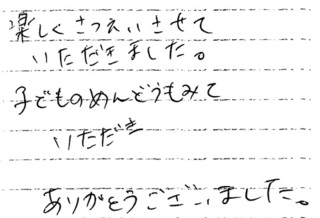 楽しくさつえいさせて
いただきました。
子どものめんどうもみて
いただき
ありがとうございました。